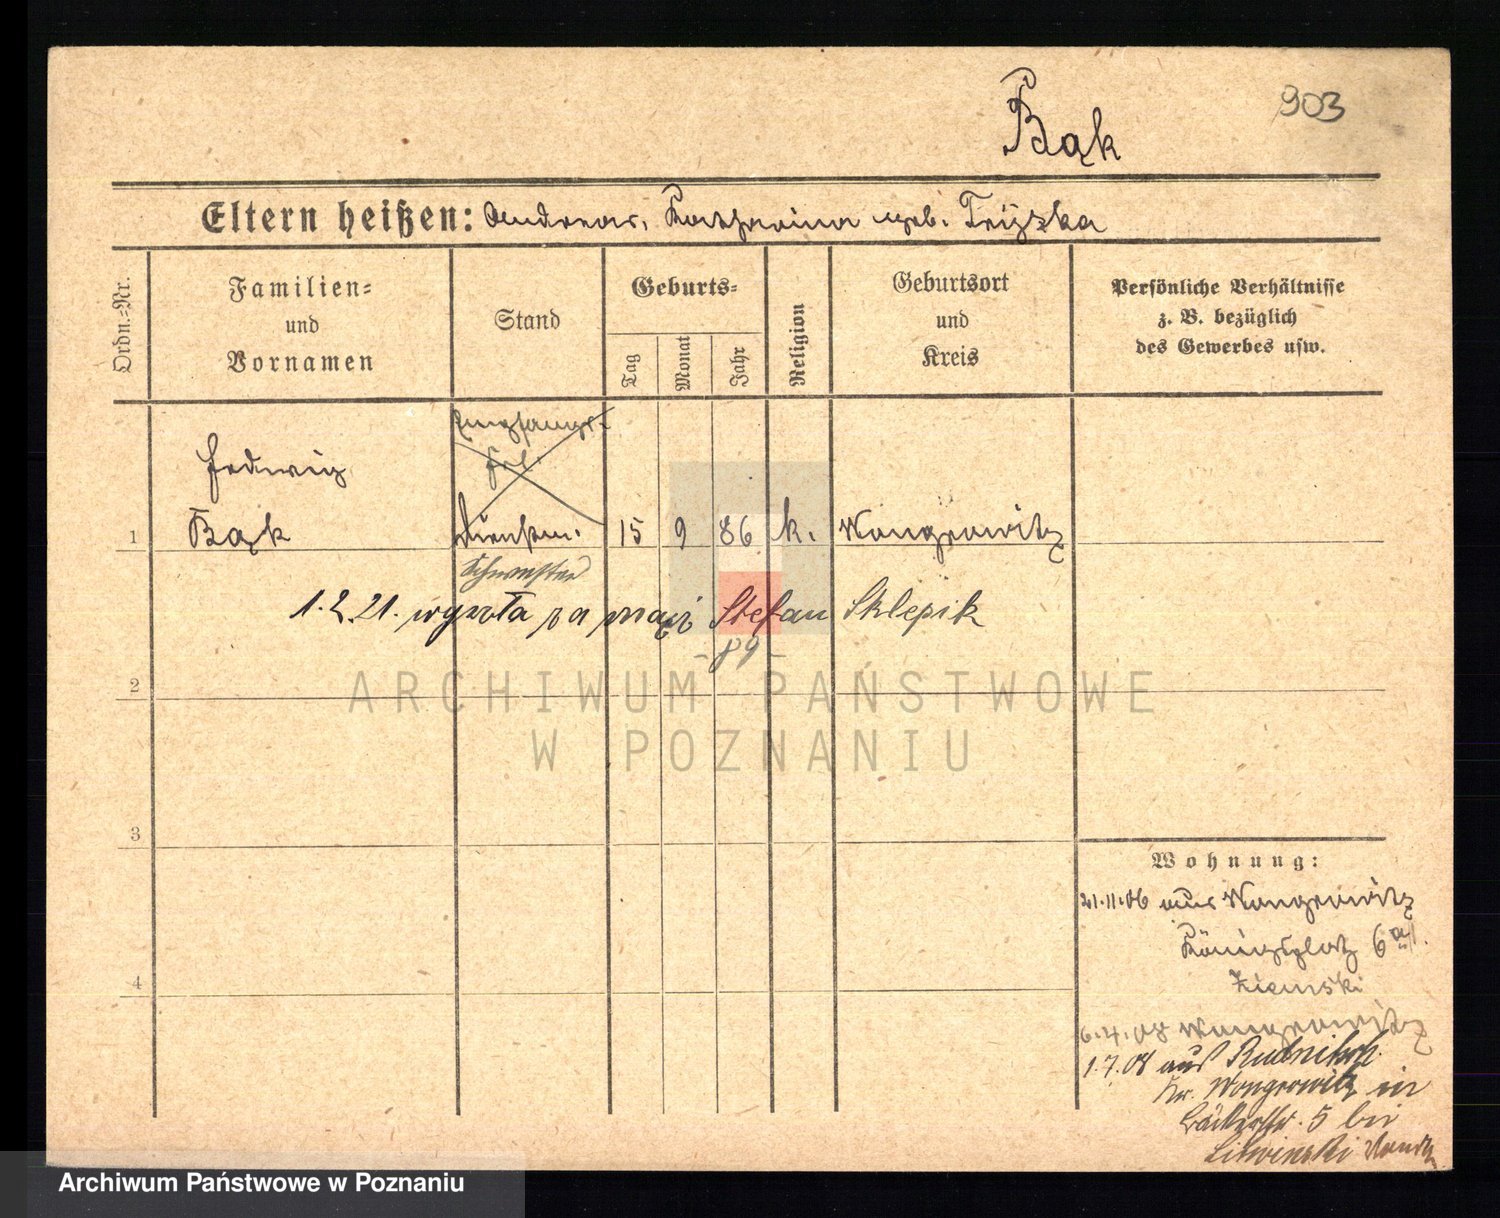 903
Bąk
Eltern heißen: Andreas, Katharina geb. Tryzka
Ordn.=Nr.
Familien=
und
Vornamen
Stand
Geburts=
Tag
Monat
Jahr
Religion
Geburtsort
und
Kreis
Persönliche Verhältnisse
z. B. bezüglich
des Gewerbes usw.
Empfangs-
Frl.
Hedwig
1 Bąk 15 9 86 k. Wongrowitz
Schwester
1.2.21. wyszła za mąż Stefan Sklepik
- 89 -
2
ARCHIWUM PAŃSTWOWE
W POZNANIU
3
Wohnung:
21.11.06 aus Wongrowitz
Königsplatz 6a
Ziemski
4
6.4.08 Wongrowitz
1.7.08 aus
Kr. Wongrowitz in
Bäckerstr. 5 bei
Litwinski
Archiwum Państwowe w Poznaniu